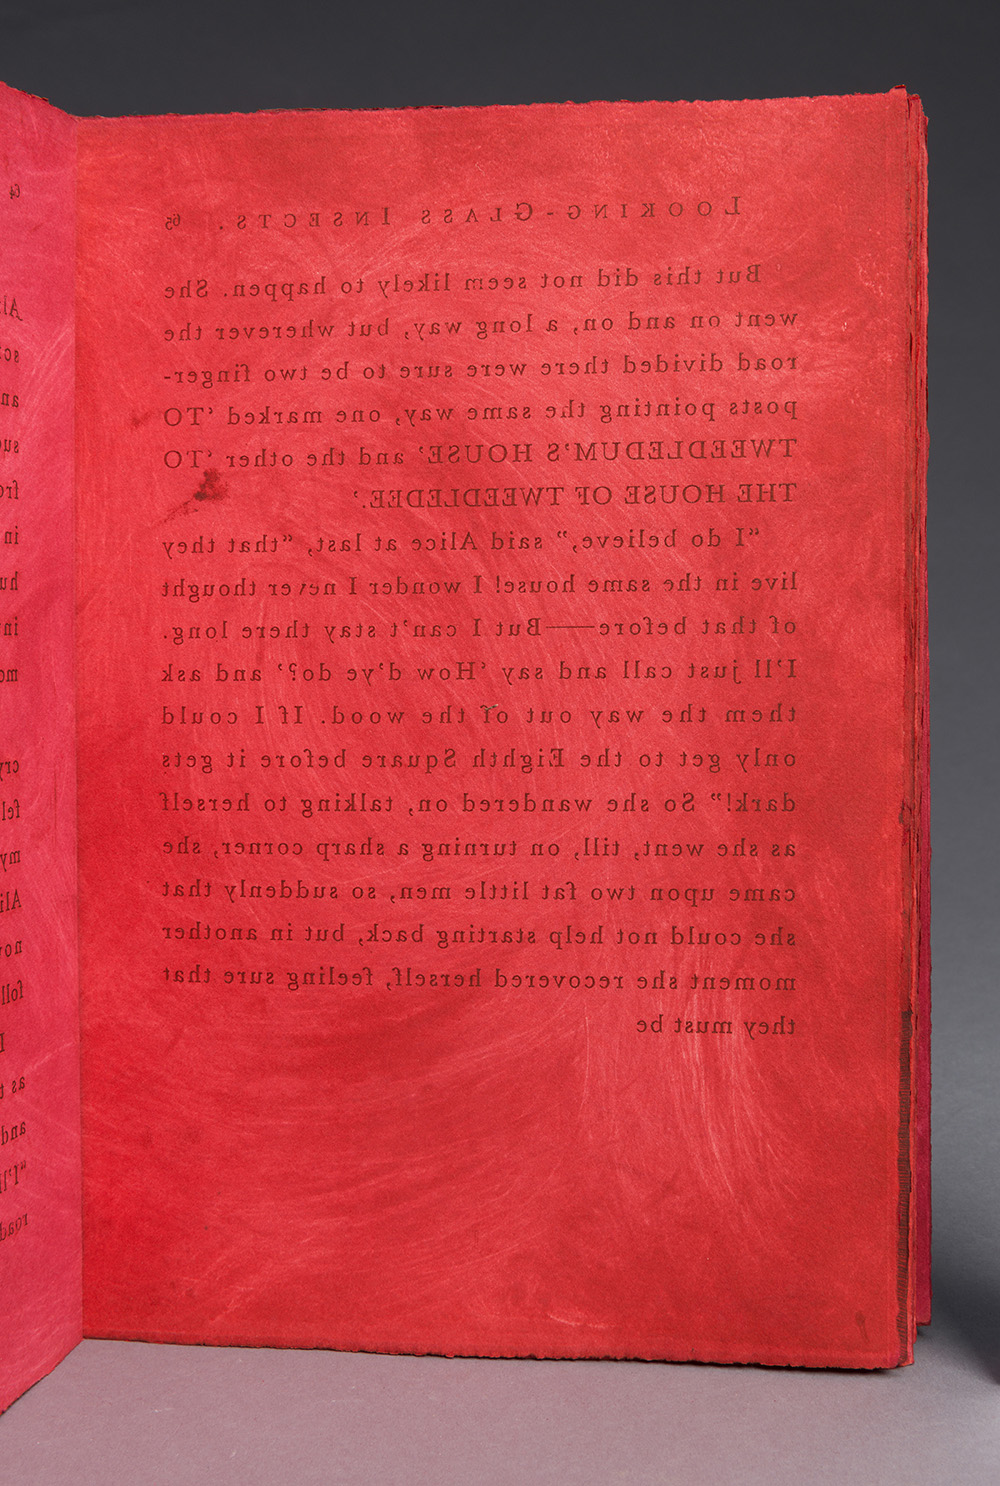 LOOKING-GLASS INSECTS. 65
But this did not seem likely to happen. She
went on and on, a long way, but wherever the
road divided there were sure to be two finger-
posts pointing the same way, one marked ‘TO
TWEEDLEDUM’S HOUSE’ and the other ‘TO
THE HOUSE OF TWEEDLEDEE.’
“I do believe,” said Alice at last, “that they
live in the same house! I wonder I never thought
of that before——But I can’t stay there long.
I’ll just call and say ‘How d’ye do?’ and ask
them the way out of the wood. If I could
only get to the Eighth Square before it gets
dark!” So she wandered on, talking to herself
as she went, till, on turning a sharp corner, she
came upon two fat little men, so suddenly that
she could not help starting back, but in another
moment she recovered herself, feeling sure that
they must be
64